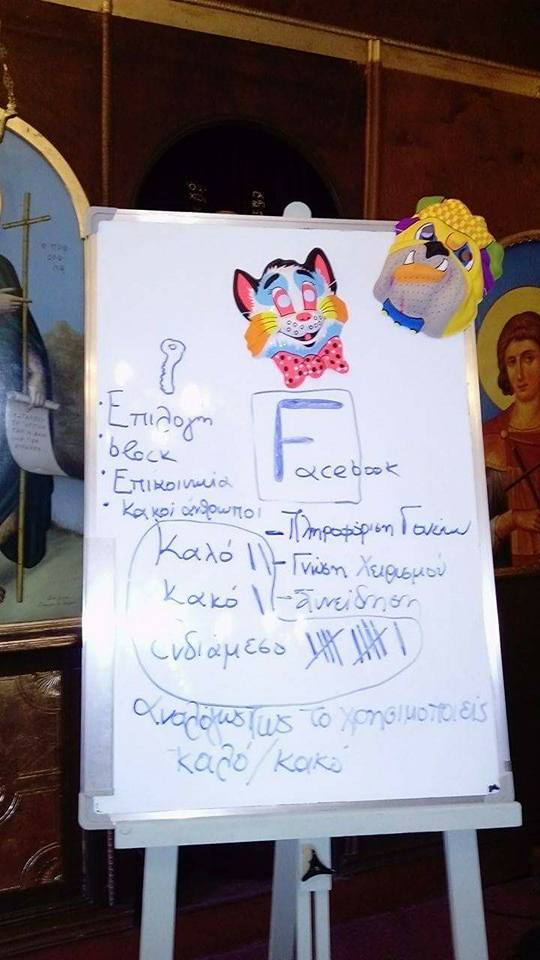 Facebook
· Επιλογή
· block
· Επικοινωνία
· Κακοί άνθρωποι
- Πληροφόριση Γονέων
Καλό ||
- Γνώση Χειρισμού
Κακό |
- Συνείδηση
ενδιάμεσο
αναλόγως πως το χρησιμοποιείς
καλό/κακό